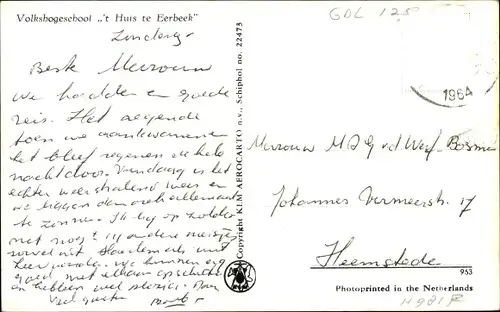 Volkshogeschool „'t Huis te Eerbeek"
GDL 125
Zondag.
Beste Mevrouw
We hadden een goede
reis. Het regende
toen we aankwamen
het bleef regenen de hele
nacht door. Vandaag is het
echter weer stralend weer en
we liggen dan ook allemaal
te zonnen. Ik lig op zolder
met nog
en hebben veel plezier. Dag
Veel groeten
Copyright KLM AEROCARTO n.v., Schiphol no. 22473
1964
Mevrouw M D G v d Werf-Bosma
Johannes Vermeerstr. 17
Heemstede
953
Photoprinted in the Netherlands